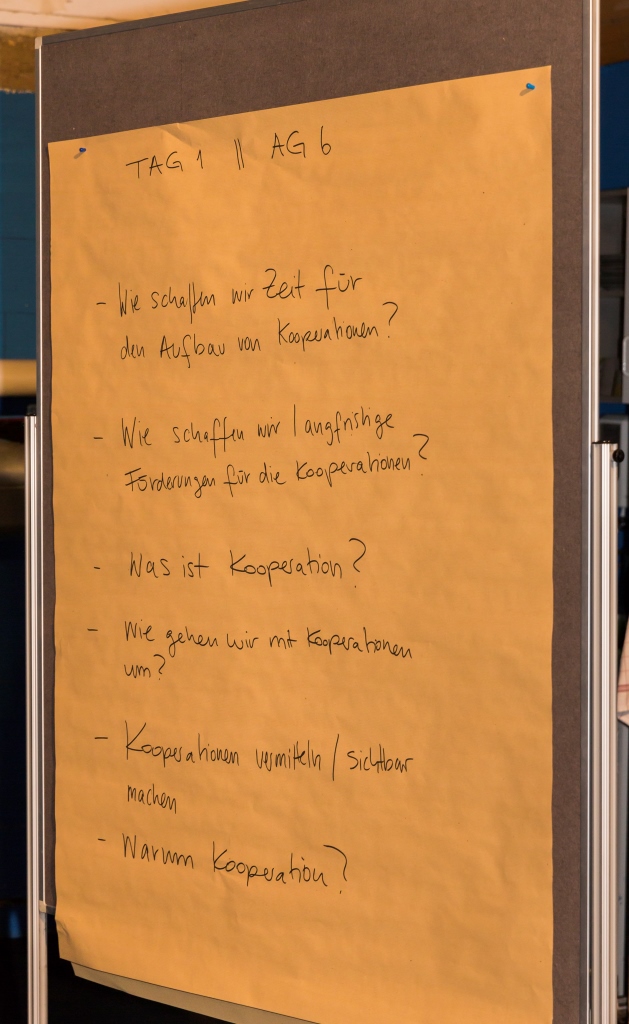 TAG 1 || AG 6
- Wie schaffen wir Zeit für
den Aufbau von Kooperationen?
- Wie schaffen wir langfristige
Förderungen für die Kooperationen?
- Was ist Kooperation?
- Wie gehen wir mit Kooperationen
um?
- Kooperationen vermitteln / sichtbar
machen
- Warum Kooperation?